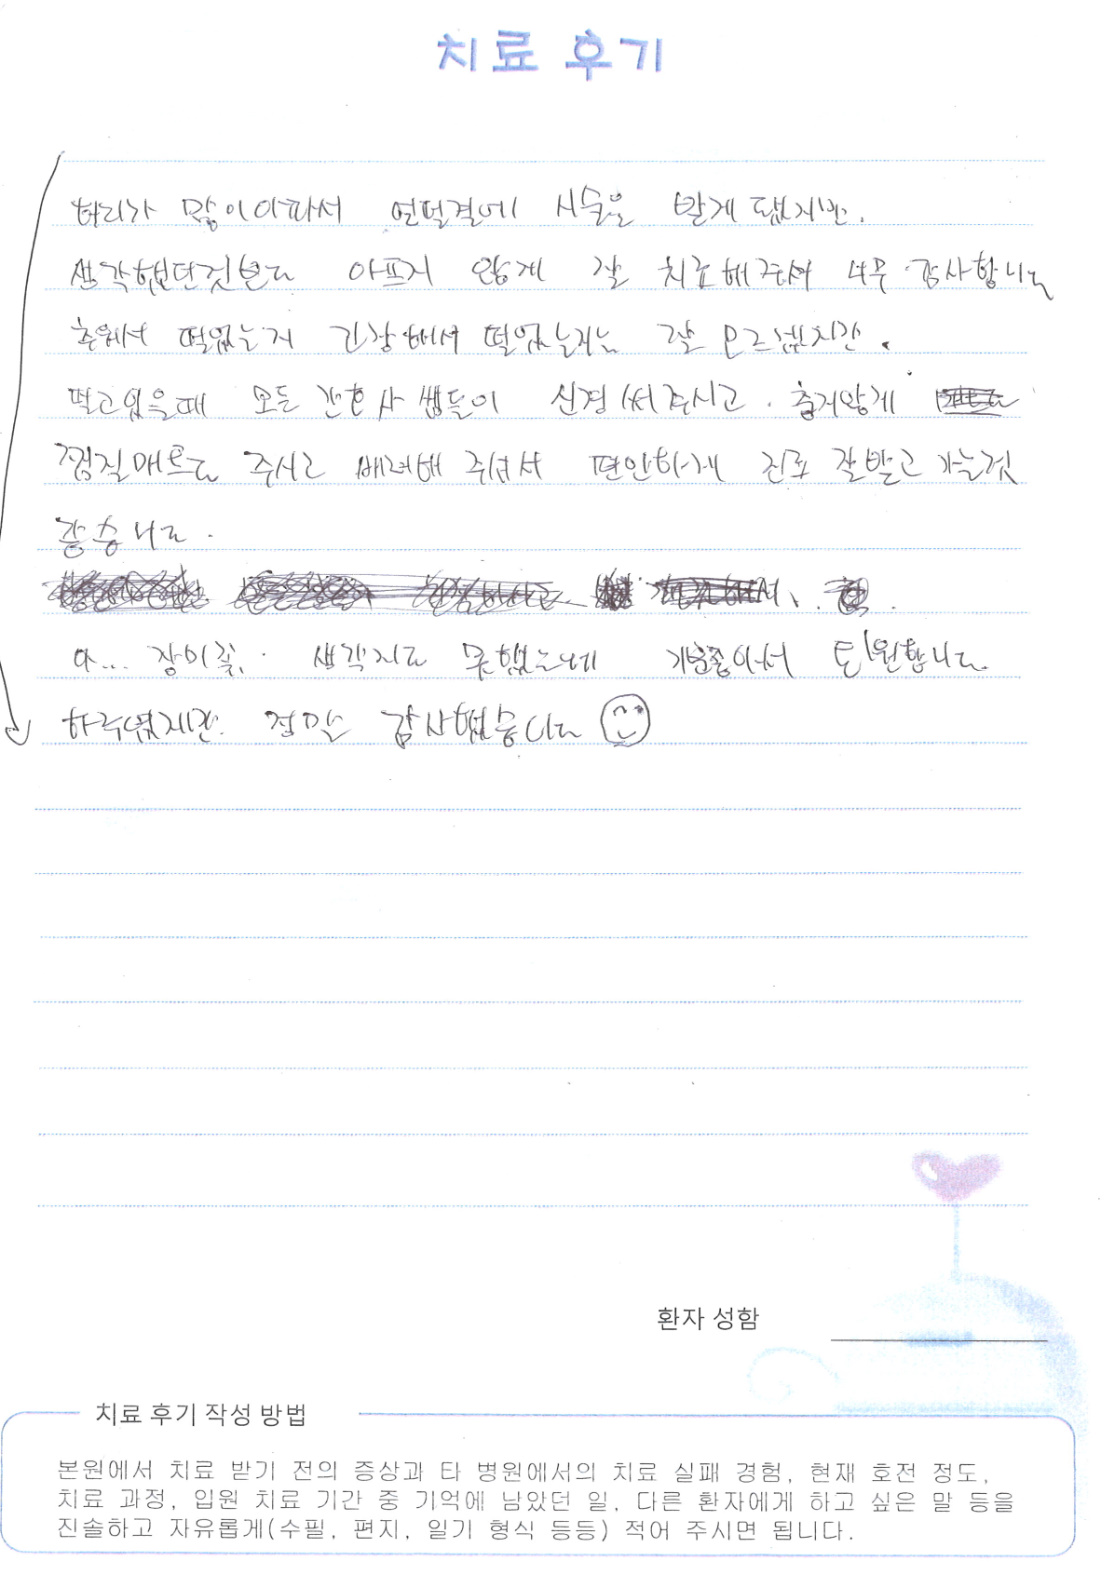 치료 후기
허리가 많이아파서 언떨결에 시술을 받게 됐지만.
생각했던것보다 아프지 않게 잘 치료해주셔서 너무 감사합니다
추워서 떨었는지 긴장해서 떨었는지는 잘 모르겠지만.
떨고있을때 모든 간호사 쌤들이 신경써주시고. 춥지않게
찜질매트도 주시고 배려해 주셔서 편안하게 진료 잘받고 가는것
같습니다.
아... 장미꽃. 생각지도 못했는데 기분좋아서 퇴원합니다.
하루였지만. 정말 감사했습니다
환자 성함
치료 후기 작성 방법
본원에서 치료 받기 전의 증상과 타 병원에서의 치료 실패 경험, 현재 호전 정도,
치료 과정, 입원 치료 기간 중 기억에 남았던 일, 다른 환자에게 하고 싶은 말 등을
진솔하고 자유롭게(수필, 편지, 일기 형식 등등) 적어 주시면 됩니다.